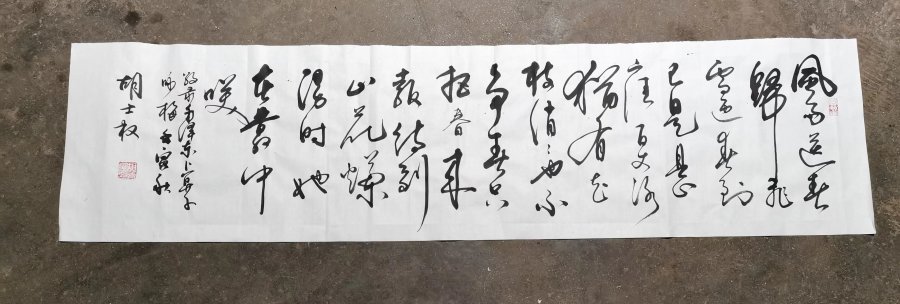 風雨送春
歸飛
雪迎春到
已是悬
崖百丈冰
猶有花
枝俏俏也不
争春只
把春来
報待到
山花烂
漫时她
在丛中
笑
毛泽东卜算子
咏梅 寅秋
胡士权